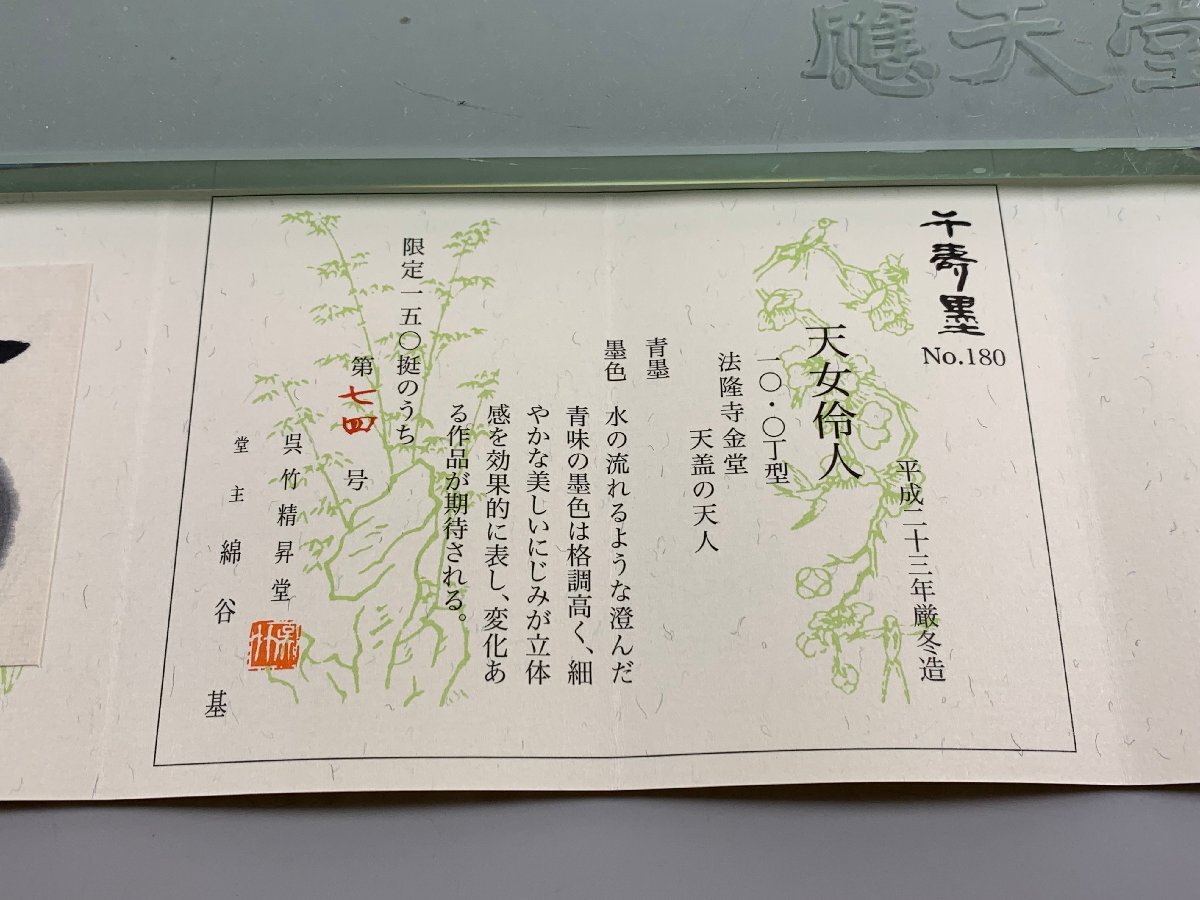 應天堂
千壽墨
No.180
平成二十三年厳冬造
天女伶人
一〇・〇丁型
法隆寺金堂
天蓋の天人
青墨
墨色 水の流れるような澄んだ
青味の墨色は格調高く、細
やかな美しいにじみが立体
感を効果的に表し、変化あ
る作品が期待される。
限定一五〇挺のうち
第 七四 号
呉竹精昇堂
堂主 綿谷 基